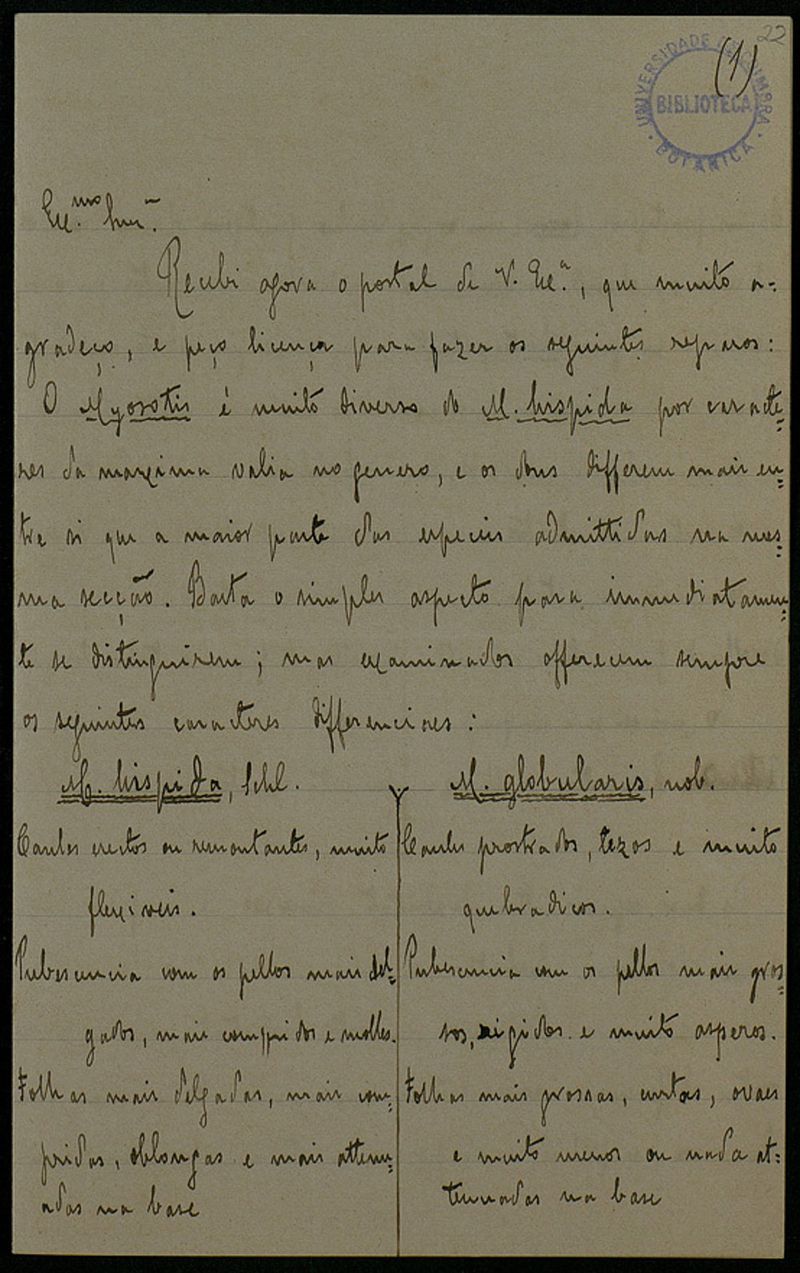 22
(1)
UNIVERSIDADE DE COIMBRA
BIBLIOTECA
BOTANICA
Ex.mo Snr.
Recebi agora o postal de V. Ex.a, que muito a-
gradeço, e peço licença para fazer os seguintes reparos:
O Myosotis é muito diverso do M. hispida por caracte-
res da maxima valia no genero, e os dous differem mais en-
tre si que a maior parte das especies admittidas na mes-
ma secção. Basta o simples aspecto para immediatamen-
te se distinguirem; mas examinados offerecem sempre
os seguintes caracteres differenciaes:
M. hispida, Schl.
Caules erectos ou remontantes, muito
flexiveis.
Pubescencia com os pellos mais del-
gados, mais compridos e molles.
Folhas mais delgadas, mais com-
pridas, oblongas e mais attenu-
adas na base
M. globularis, nob.
Caules prostrados, tezos e muito
quebradicos.
Pubescencia com os pellos mais gros-
sos, rigidos e muito asperos.
Folhas mais grossas, curtas, ovaes
e muito menos ou nada at-
tenuadas na base